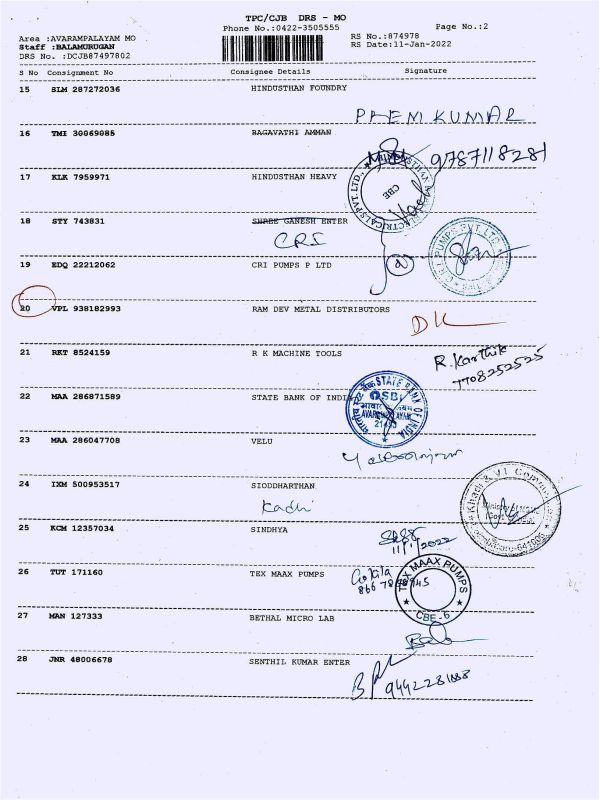 TPC/CJB DRS - MO
Phone No.:0422-3505555 Page No.:2
Area :AVARAMPALAYAM MO RS No.:874978
Staff :BALAMURUGAN RS Date:11-Jan-2022
DRS No. :DCJB87497802
S No Consignment No Consignee Details Signature
15 SLM 287272036 HINDUSTHAN FOUNDRY
PREM KUMAR
16 TMI 30069085 BAGAVATHI AMMAN
9787118281
17 KLK 7959971 HINDUSTHAN HEAVY
CBE
18 STY 743831 SHREE GANESH ENTER
CRI
19 EDQ 22212062 CRI PUMPS P LTD
20 VPL 938182993 RAM DEV METAL DISTRIBUTORS
DK
21 RKT 8524159 R K MACHINE TOOLS
R. Karthik
7708252525
22 MAA 286871589 STATE BANK OF INDIA
STATE BANK OF INDIA
SBI
23 MAA 286047708 VELU
24 IXM 500953517 SIODDHARTHAN
Kadhi
25 KCM 12357034 SINDHYA
11/1/2022
26 TUT 171160 TEX MAAX PUMPS
Gokila
TEX MAAX PUMPS
CBE-6
27 MAN 127333 BETHAL MICRO LAB
28 JNR 48006678 SENTHIL KUMAR ENTER